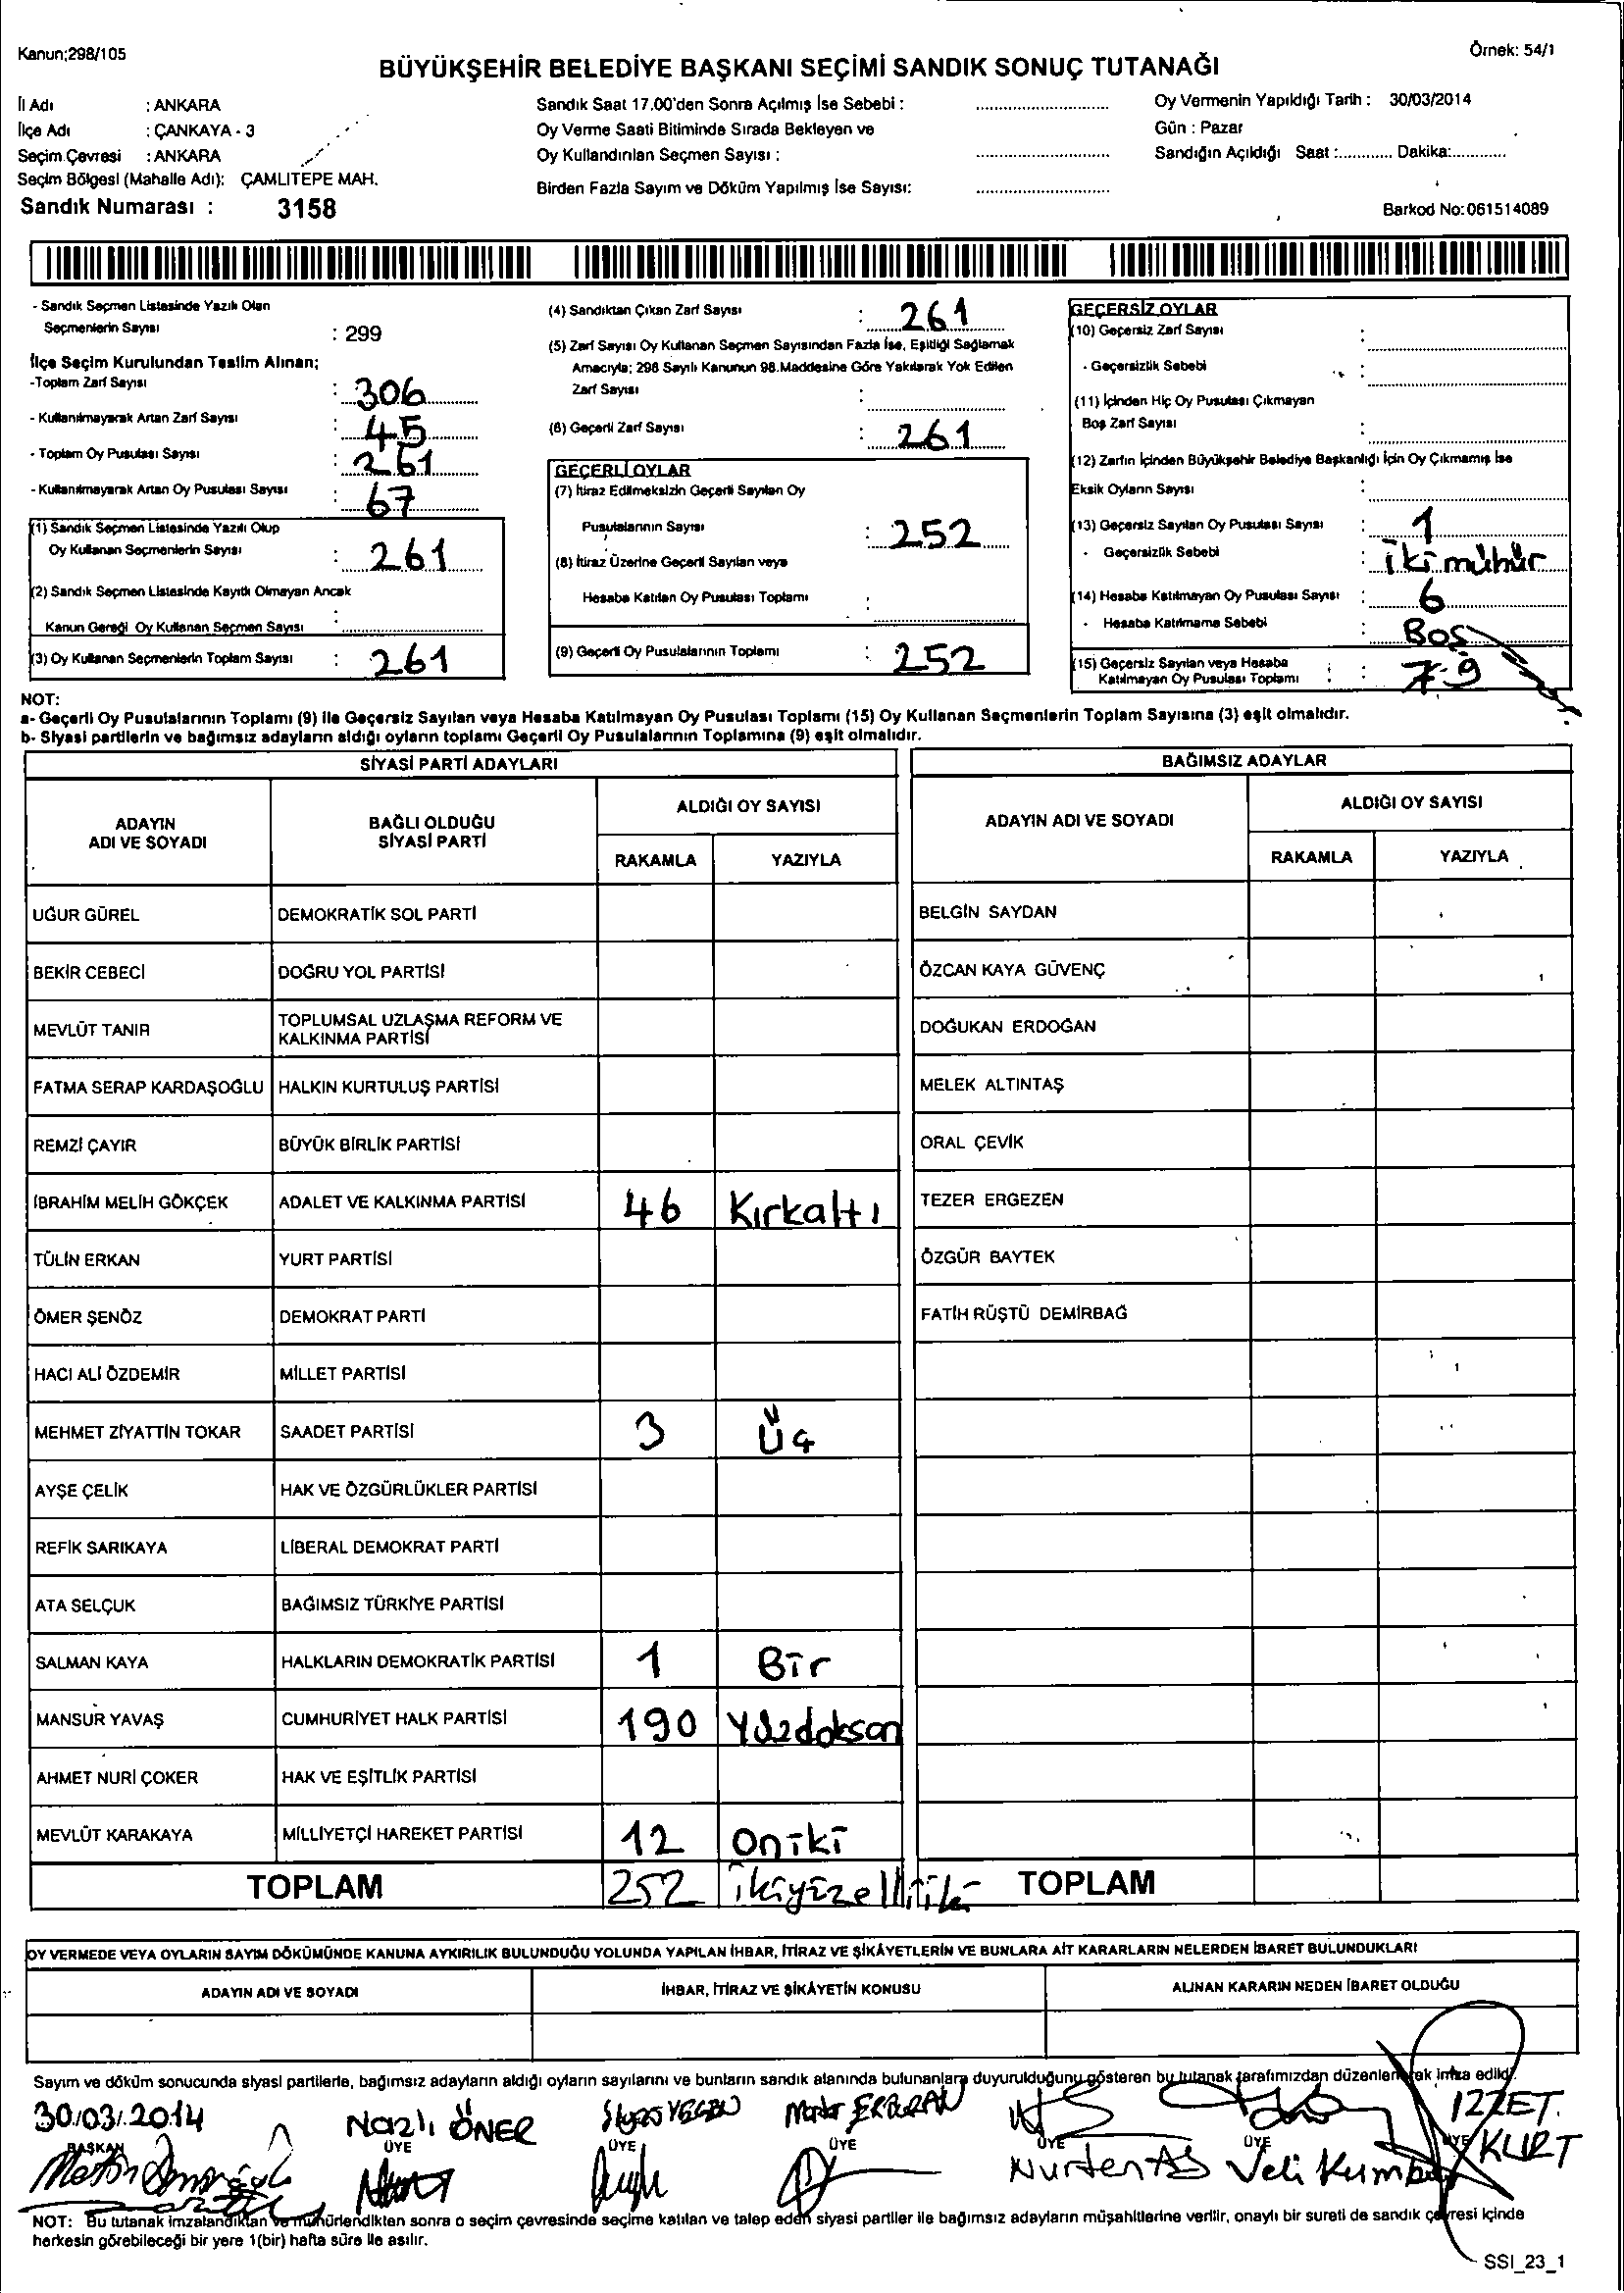 Kanun;298/105
Örnek: 54/1
BÜYÜKŞEHİR BELEDİYE BAŞKANI SEÇİMİ SANDIK SONUÇ TUTANAĞI
İl Adı : ANKARA
İlçe Adı : ÇANKAYA - 3
Seçim Çevresi : ANKARA
Seçim Bölgesi (Mahalle Adı): ÇAMLITEPE MAH.
Sandık Numarası : 3158
Sandık Saat 17.00'den Sonra Açılmış İse Sebebi :
Oy Verme Saati Bitiminde Sırada Bekleyen ve
Oy Kullandırılan Seçmen Sayısı :
Birden Fazla Sayım ve Döküm Yapılmış İse Sayısı:
Oy Vermenin Yapıldığı Tarih : 30/03/2014
Gün : Pazar
Sandığın Açıldığı Saat :............ Dakika:............
Barkod No:061514089
- Sandık Seçmen Listesinde Yazılı Olan
Seçmenlerin Sayısı : 299
İlçe Seçim Kurulundan Teslim Alınan;
-Toplam Zarf Sayısı : 306
- Kullanılmayarak Artan Zarf Sayısı : 45
- Toplam Oy Pusulası Sayısı : 261
- Kullanılmayarak Artan Oy Pusulası Sayısı : 67
(1) Sandık Seçmen Listesinde Yazılı Olup
Oy Kullanan Seçmenlerin Sayısı : 261
(2) Sandık Seçmen Listesinde Kayıtlı Olmayan Ancak
Kanun Gereği Oy Kullanan Seçmen Sayısı :
(3) Oy Kullanan Seçmenlerin Toplam Sayısı : 261
(4) Sandıktan Çıkan Zarf Sayısı : 261
(5) Zarf Sayısı Oy Kullanan Seçmen Sayısından Fazla İse, Eşitliği Sağlamak
Amacıyla; 298 Sayılı Kanunun 98.Maddesine Göre Yakılarak Yok Edilen
Zarf Sayısı :
(6) Geçerli Zarf Sayısı : 261
GEÇERLİ OYLAR
(7) İtiraz Edilmeksizin Geçerli Sayılan Oy
Pusulalarının Sayısı : 252
(8) İtiraz Üzerine Geçerli Sayılan veya
Hesaba Katılan Oy Pusulası Toplamı :
(9) Geçerli Oy Pusulalarının Toplamı : 252
GEÇERSİZ OYLAR
(10) Geçersiz Zarf Sayısı :
- Geçersizlik Sebebi :
(11) İçinden Hiç Oy Pusulası Çıkmayan
Boş Zarf Sayısı :
(12) Zarfın İçinden Büyükşehir Belediye Başkanlığı İçin Oy Çıkmamış İse
Eksik Oyların Sayısı :
(13) Geçersiz Sayılan Oy Pusulası Sayısı : 1
- Geçersizlik Sebebi : iki mühür
(14) Hesaba Katılmayan Oy Pusulası Sayısı : 6
- Hesaba Katılmama Sebebi : Boş
(15) Geçersiz Sayılan veya Hesaba
Katılmayan Oy Pusulası Toplamı : 7 9
NOT:
a- Geçerli Oy Pusulalarının Toplamı (9) ile Geçersiz Sayılan veya Hesaba Katılmayan Oy Pusulası Toplamı (15) Oy Kullanan Seçmenlerin Toplam Sayısına (3) eşit olmalıdır.
b- Siyasi partilerin ve bağımsız adayların aldığı oyların toplamı Geçerli Oy Pusulalarının Toplamına (9) eşit olmalıdır.
SİYASİ PARTİ ADAYLARI
ADAYIN ADI VE SOYADI
BAĞLI OLDUĞU SİYASİ PARTİ
ALDIĞI OY SAYISI
RAKAMLA YAZIYLA
UĞUR GÜREL DEMOKRATİK SOL PARTİ
BEKİR CEBECİ DOĞRU YOL PARTİSİ
MEVLÜT TANIR TOPLUMSAL UZLAŞMA REFORM VE
KALKINMA PARTİSİ
FATMA SERAP KARDAŞOĞLU HALKIN KURTULUŞ PARTİSİ
REMZİ ÇAYIR BÜYÜK BİRLİK PARTİSİ
İBRAHİM MELİH GÖKÇEK ADALET VE KALKINMA PARTİSİ 46 Kırkaltı
TÜLİN ERKAN YURT PARTİSİ
ÖMER ŞENÖZ DEMOKRAT PARTİ
HACI ALİ ÖZDEMİR MİLLET PARTİSİ
MEHMET ZİYATTİN TOKAR SAADET PARTİSİ 3 Üç
AYŞE ÇELİK HAK VE ÖZGÜRLÜKLER PARTİSİ
REFİK SARIKAYA LİBERAL DEMOKRAT PARTİ
ATA SELÇUK BAĞIMSIZ TÜRKİYE PARTİSİ
SALMAN KAYA HALKLARIN DEMOKRATİK PARTİSİ 1 Bir
MANSUR YAVAŞ CUMHURİYET HALK PARTİSİ 190 Yüzdoksan
AHMET NURİ ÇOKER HAK VE EŞİTLİK PARTİSİ
MEVLÜT KARAKAYA MİLLİYETÇİ HAREKET PARTİSİ 12 Oniki
TOPLAM 252 ikiyüzelliiki
BAĞIMSIZ ADAYLAR
ADAYIN ADI VE SOYADI
ALDIĞI OY SAYISI
RAKAMLA YAZIYLA
BELGİN SAYDAN
ÖZCAN KAYA GÜVENÇ
DOĞUKAN ERDOĞAN
MELEK ALTINTAŞ
ORAL ÇEVİK
TEZER ERGEZEN
ÖZGÜR BAYTEK
FATİH RÜŞTÜ DEMİRBAĞ
TOPLAM
OY VERMEDE VEYA OYLARIN SAYIM DÖKÜMÜNDE KANUNA AYKIRILIK BULUNDUĞU YOLUNDA YAPILAN İHBAR, İTİRAZ VE ŞİKÂYETLERİN VE BUNLARA AİT KARARLARIN NELERDEN İBARET BULUNDUKLARI
ADAYIN ADI VE SOYADI İHBAR, İTİRAZ VE ŞİKÂYETİN KONUSU ALINAN KARARIN NEDEN İBARET OLDUĞU
Sayım ve döküm sonucunda siyasi partilerle, bağımsız adayların aldığı oyların sayılarını ve bunların sandık alanında bulunanlara duyurulduğunu gösteren bu tutanak tarafımızdan düzenlenerek imza edildi.
30/03/2014 Nazlı ÖNER İZZET KURT
BAŞKAN ÜYE ÜYE ÜYE ÜYE ÜYE ÜYE
Metin Nurten AS Veli
NOT: Bu tutanak imzalandıktan ve mühürlendikten sonra o seçim çevresinde seçime katılan ve talep eden siyasi partiler ile bağımsız adayların müşahitlerine verilir, onaylı bir sureti de sandık çevresi içinde
herkesin görebileceği bir yere 1(bir) hafta süre ile asılır.
SSI_23_1